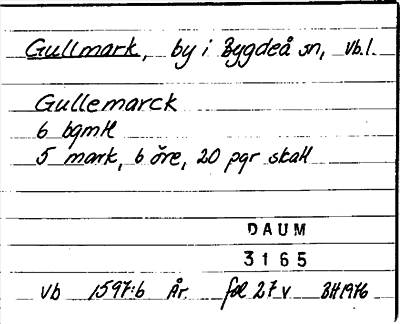 Gullmark, by i Bygdeå sn, Vb.l.
Gullemarck
6 bgmH
5 mark, 6 öre, 20 pgr skatt
DAUM
3165
Vb 1597:6 År. fol 27 v BH1976